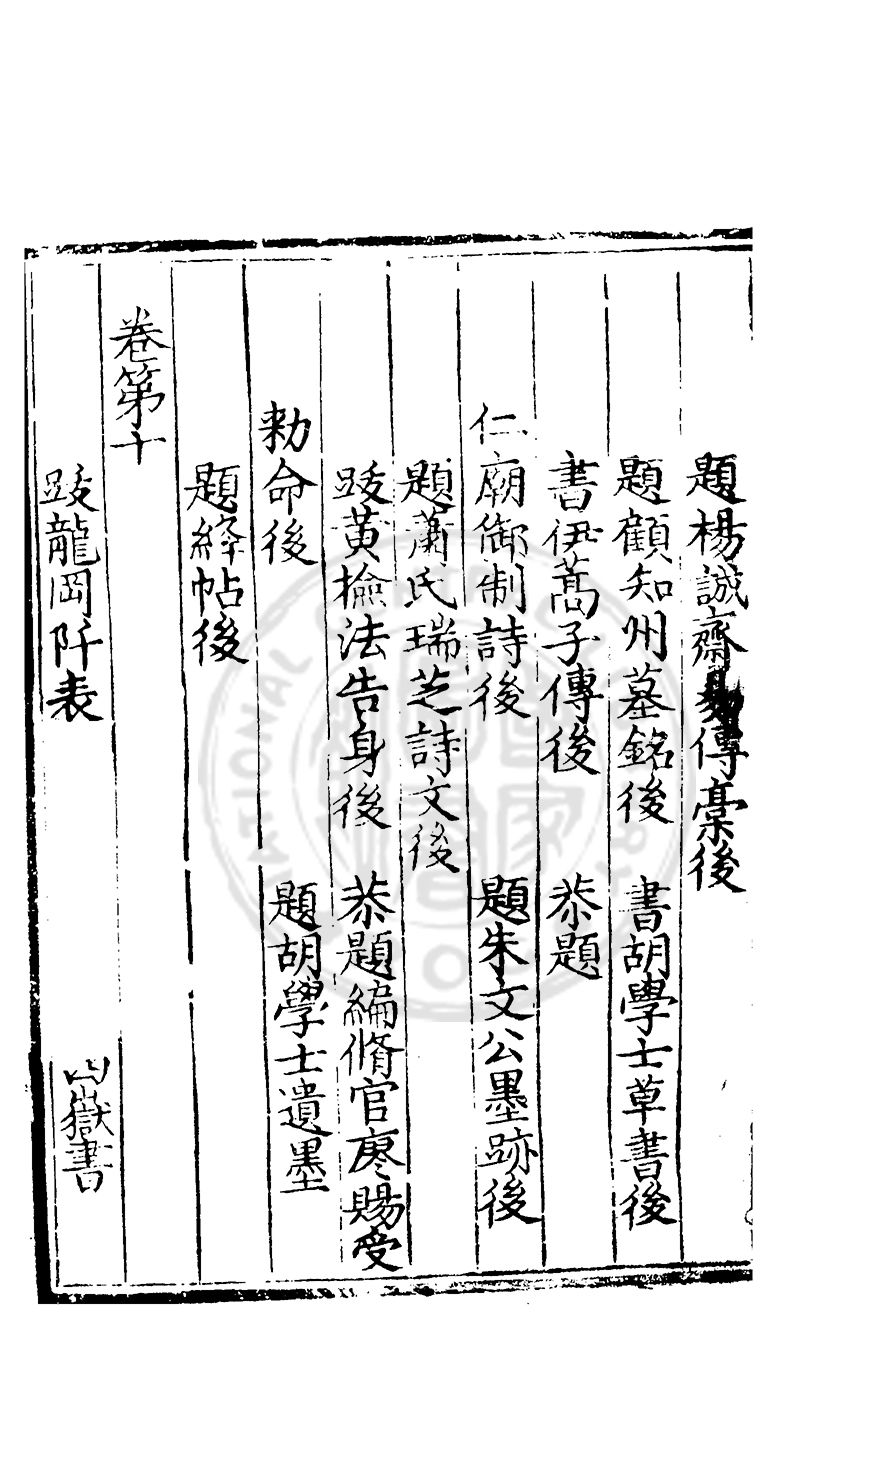 題楊誠齋易傳稾後
題顧知州墓銘後 書胡學士草書後
書伊蒿子傳後 恭題
仁廟御制詩後 題朱文公墨跡後
題蕭氏瑞芝詩文後
跋黃檢法告身後 恭題編脩官廖賜受
勑命後 題胡學士遺墨
題絳帖後
卷第十
跋龍岡阡表 四嶽書